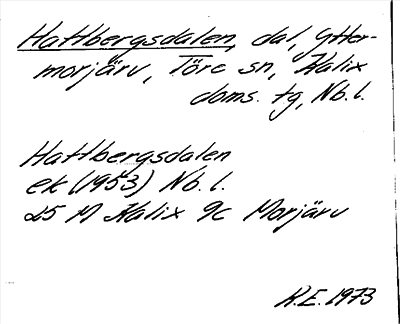 Hattbergsdalen, dal, Ytter-
morjärv, Töre sn, Kalix
doms. tg, Nb.l.
Hattbergsdalen
ek (1953) Nb.l.
25 M Kalix 9c Morjärv
K.E. 1973